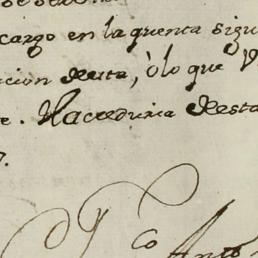 cargo en la quenta sigu
cion desta, ò lo que V
e. Hacreduria desta
Co Anto